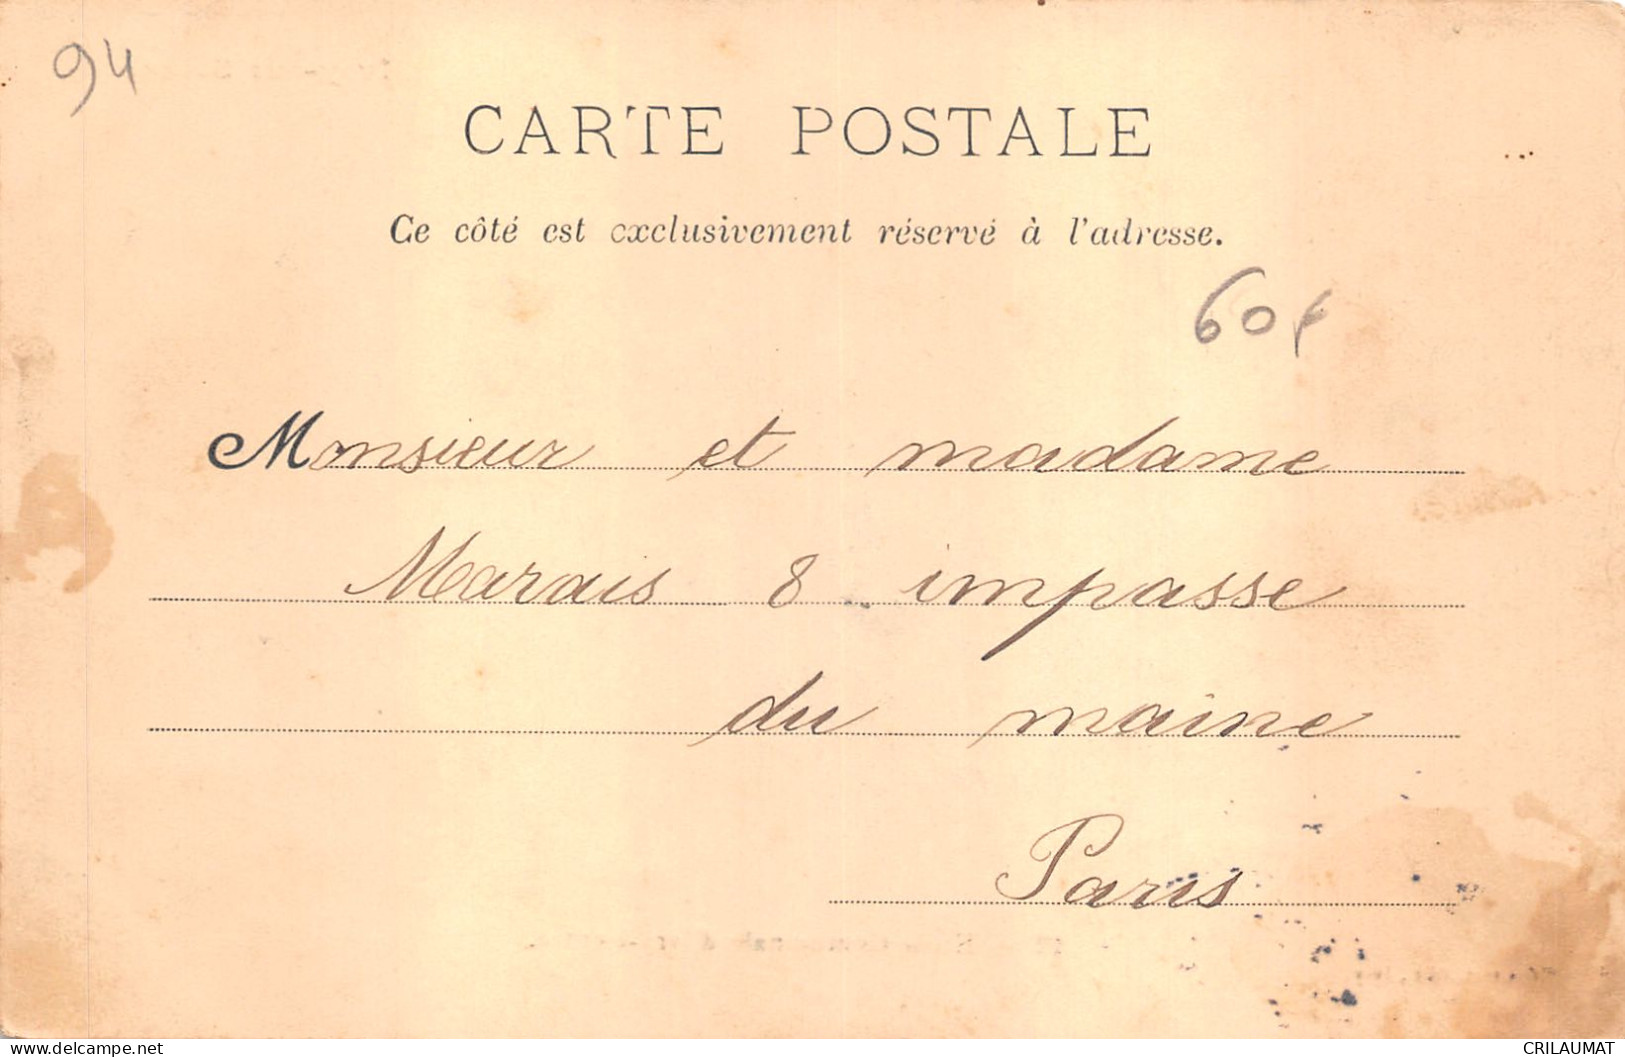 94
CARTE POSTALE
Ce côté est exclusivement réservé à l'adresse.
60f
Monsieur et madame
Marais 8 impasse
du maine
Paris
CRILAUMAT